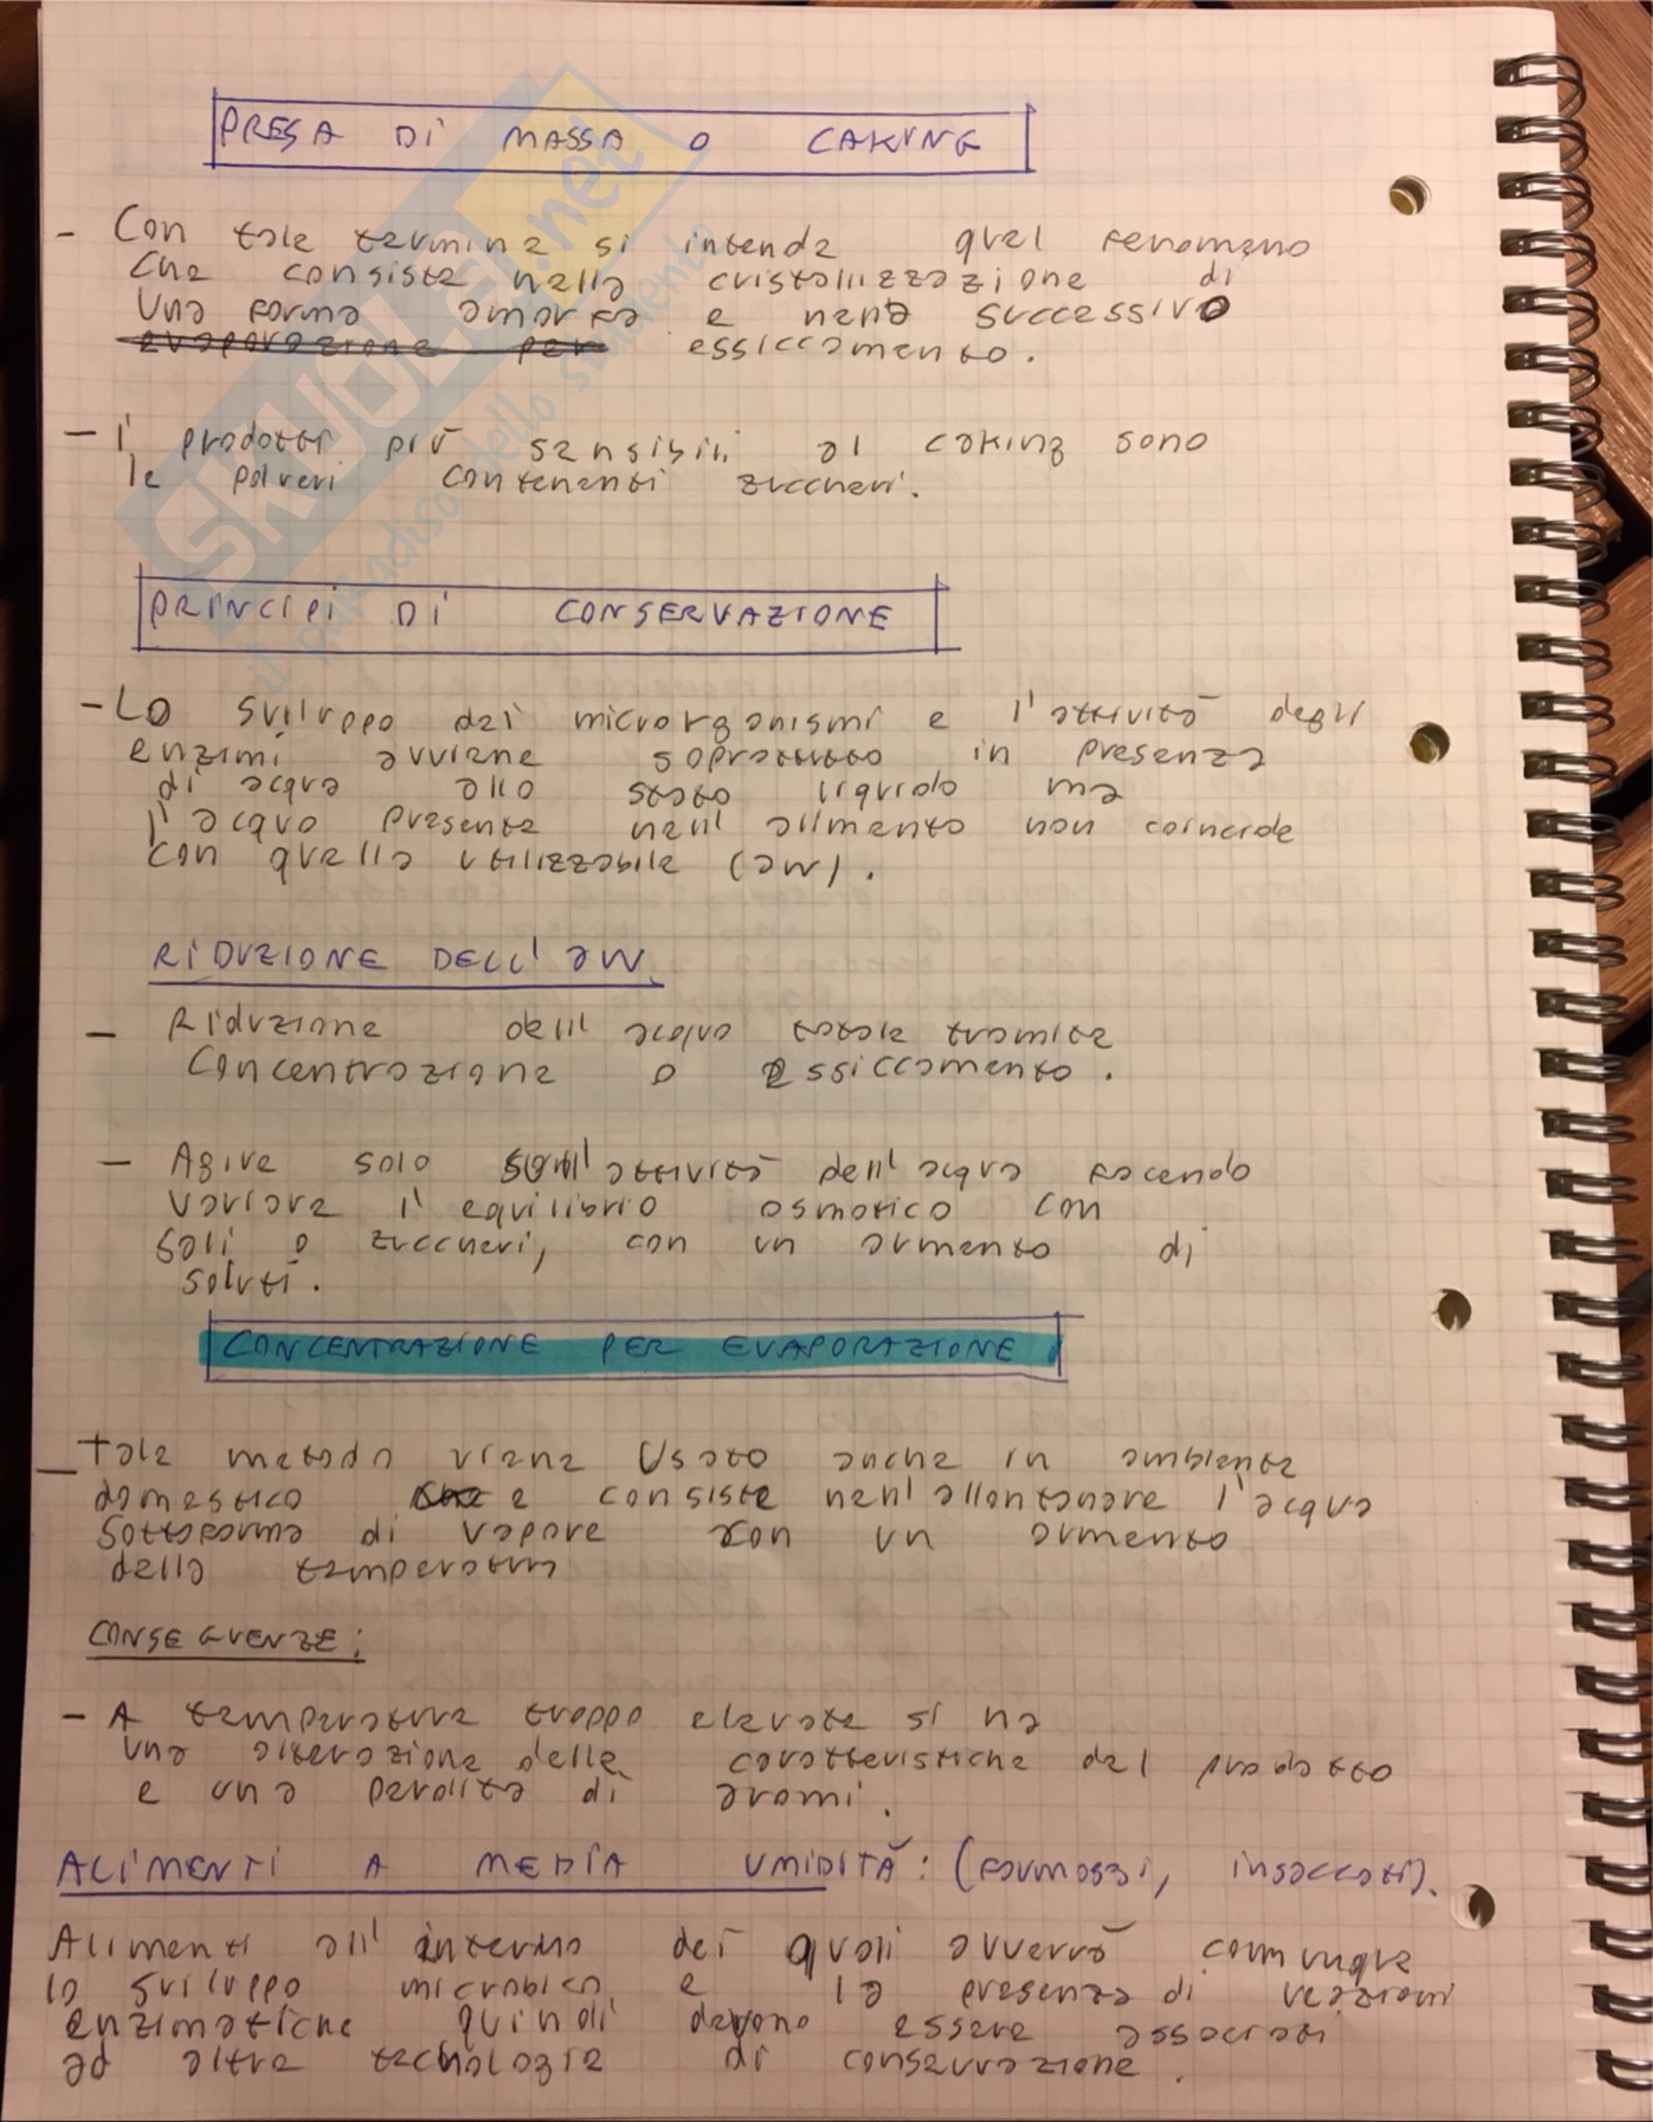 PRESA DI MASSA O CAKING
- Con tale termine si intende quel fenomeno
che consiste nella cristallizzazione di
una forma amorfa e nella successivo
evaporazione per essiccamento.
- I prodotti più sensibili al caking sono
le polveri contenenti zuccheri.
PRINCIPI DI CONSERVAZIONE
- Lo sviluppo dei microrganismi e l'attività degli
enzimi avviene soprattutto in presenza
di acqua allo stato liquido ma
l'acqua presente nell'alimento non coincide
con quella utilizzabile (aw).
RIDUZIONE DELL'aw.
- Riduzione dell'acqua totale tramite
concentrazione o essiccamento.
- Agire solo sull'attività dell'acqua facendo
variare l'equilibrio osmotico con
sali o zuccheri, con un aumento di
soluti.
CONCENTRAZIONE PER EVAPORAZIONE
- Tale metodo viene usato anche in ambiente
domestico che e consiste nell'allontanare l'acqua
sottoforma di vapore con un aumento
della temperatura
CONSEGUENZE:
- A temperature troppo elevate si ha
una alterazione delle caratteristiche del prodotto
e una perdita di aromi.
ALIMENTI A MEDIA UMIDITÀ: (formaggi, insaccati).
Alimenti all'interno dei quali avverrà comunque
lo sviluppo microbico e la presenza di reazioni
enzimatiche quindi devono essere associati
ad altre tecnologie di conservazione.
SKUOLA.net
il paradiso dello studente